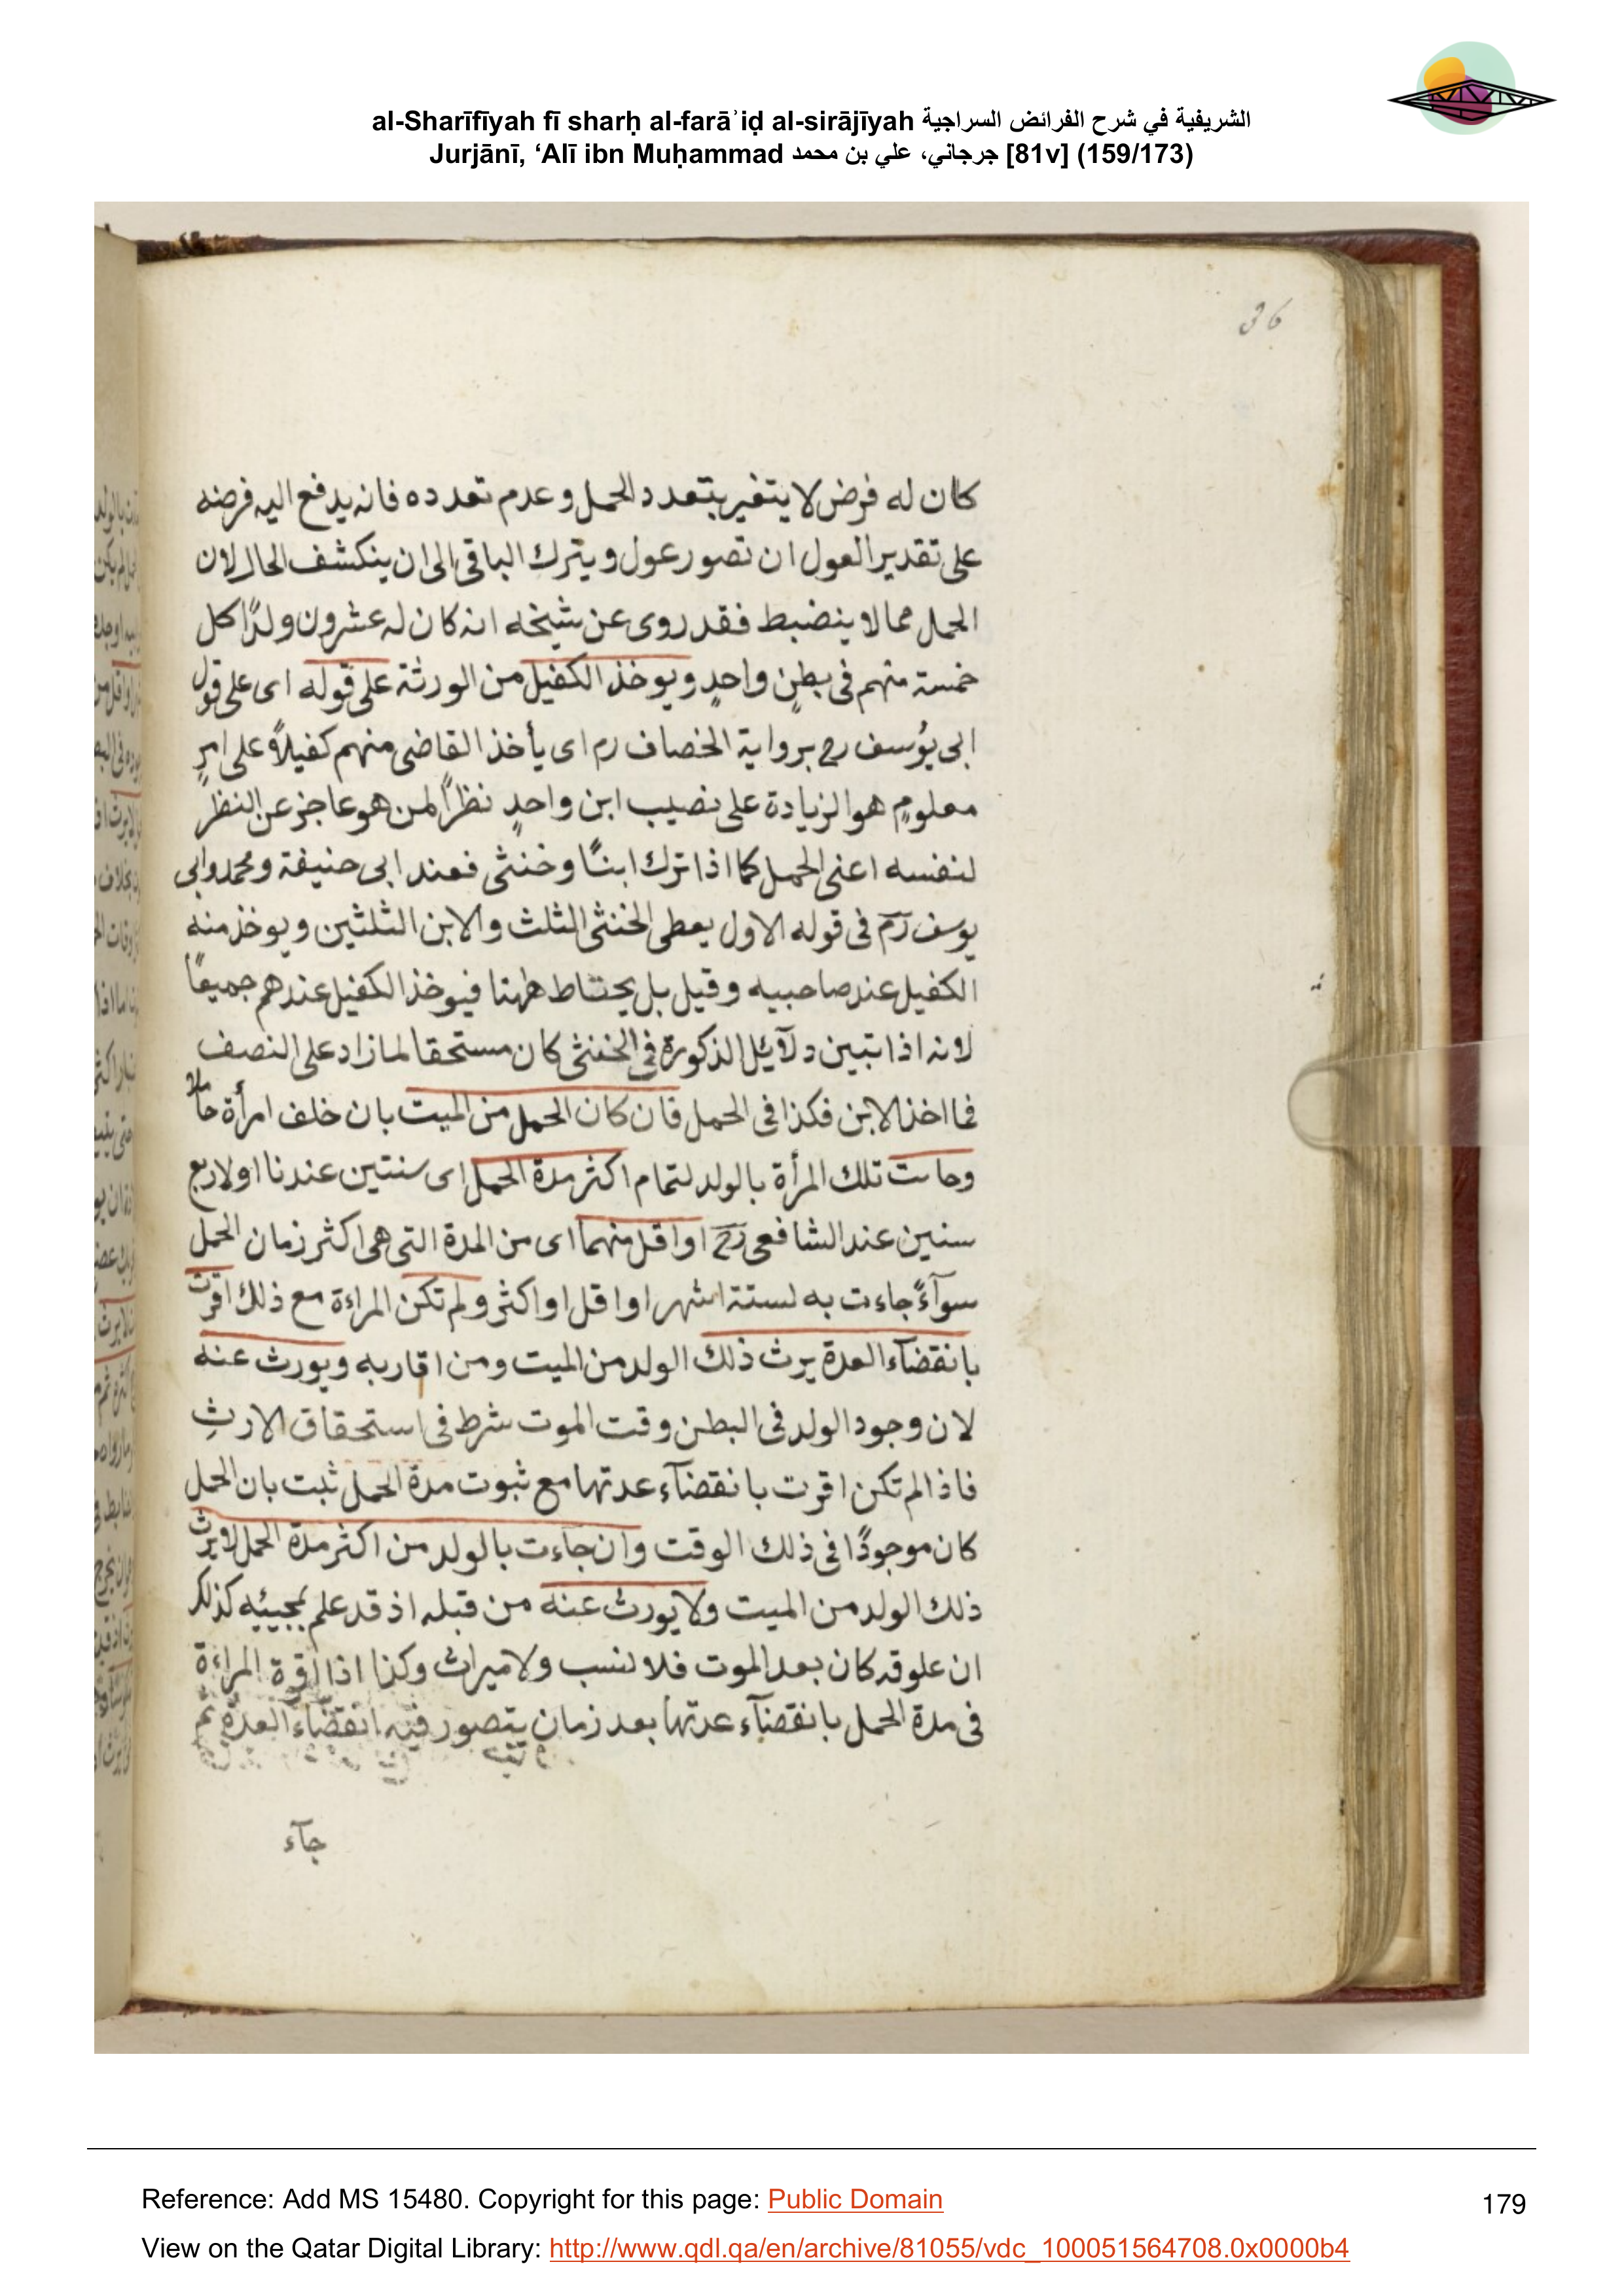 al-Sharīfīyah fī sharḥ al-farāʾiḍ al-sirājīyah الشريفية في شرح الفرائض السراجية
Jurjānī, ‘Alī ibn Muḥammad جرجاني، علي بن محمد [81v] (159/173)
كان له فرض لا يتغير بتعدد الحمل وعدم تعدده فانه يدفع اليه فرضه
على تقدير العول ان تصور عول ويترك الباقى الى ان ينكشف الحال لان
الحمل مما لا ينضبط فقد روى عن شيخه انه كان له عشرون ولدًا كل
خمسة منهم فى بطنٍ واحدٍ ويوخذ الكفيل من الورثة على قوله اى على قول
ابى يوُسف رح برواية الخصاف رم اى يأخذ القاضى منهم كفيلاً على امرٍ
معلومٍ هو الزيادة على نصيب ابن واحدٍ نظراً لمن هو عاجز عن النظر
لنفسه اعنى الحمل كما اذا ترك ابنًا وخنثى فعند ابى حنيفة ومحمد وابى
يوسف رم فى قوله الاول يعطى الخنثى الثلث والابن الثلثين ويوخذ منه
الكفيل عند صاحبيه وقيل بل يحتاط ههنا فيوخذ الكفيل عندهم جميعًا
لانه اذا تبين دلآيل الذكورة فى الخنثى كان مستحقا لما زاد على النصف
فما اخذ الابن فكذا فى الحمل فان كان الحمل من الميت بان خلف امرأة حاملا
وجاءت تلك المرأة بالولد لتمام اكثر مدة الحمل اى سنتين عندنا او لاربع
سنين عند الشافعى رح او اقل منهما اى من المدة التى هى اكثر زمان الحمل
سوآءً جاءت به لستة اشهر او اقل او اكثر ولم تكن المراءة مع ذلك اقرت
بانقضآء العدة يرث ذلك الولد من الميت ومن اقاربه ويورث عنه
لان وجود الولد فى البطن وقت الموت شرط فى استحقاق الارثِ
فاذا لم تكن اقرت بانقضآء عدتها مع ثبوت مدة الحمل ثبت بان الحمل
كان موجودًا فى ذلك الوقت وان جاءت بالولد من اكثر مدة الحمل لا يرث
ذلك الولد من الميت ولا يورث عنه من قبله اذ قد علم بمجيئه كذلك
ان علوقه كان بعد الموت فلا نسب ولا ميراث وكذا اذا اقرة المراءة
فى مدة الحمل بانقضآء عدتها بعد زمان يتصور فيه انقضآء العدة ثم
جآء
Reference: Add MS 15480. Copyright for this page: Public Domain
179
View on the Qatar Digital Library: http://www.qdl.qa/en/archive/81055/vdc_100051564708.0x0000b4